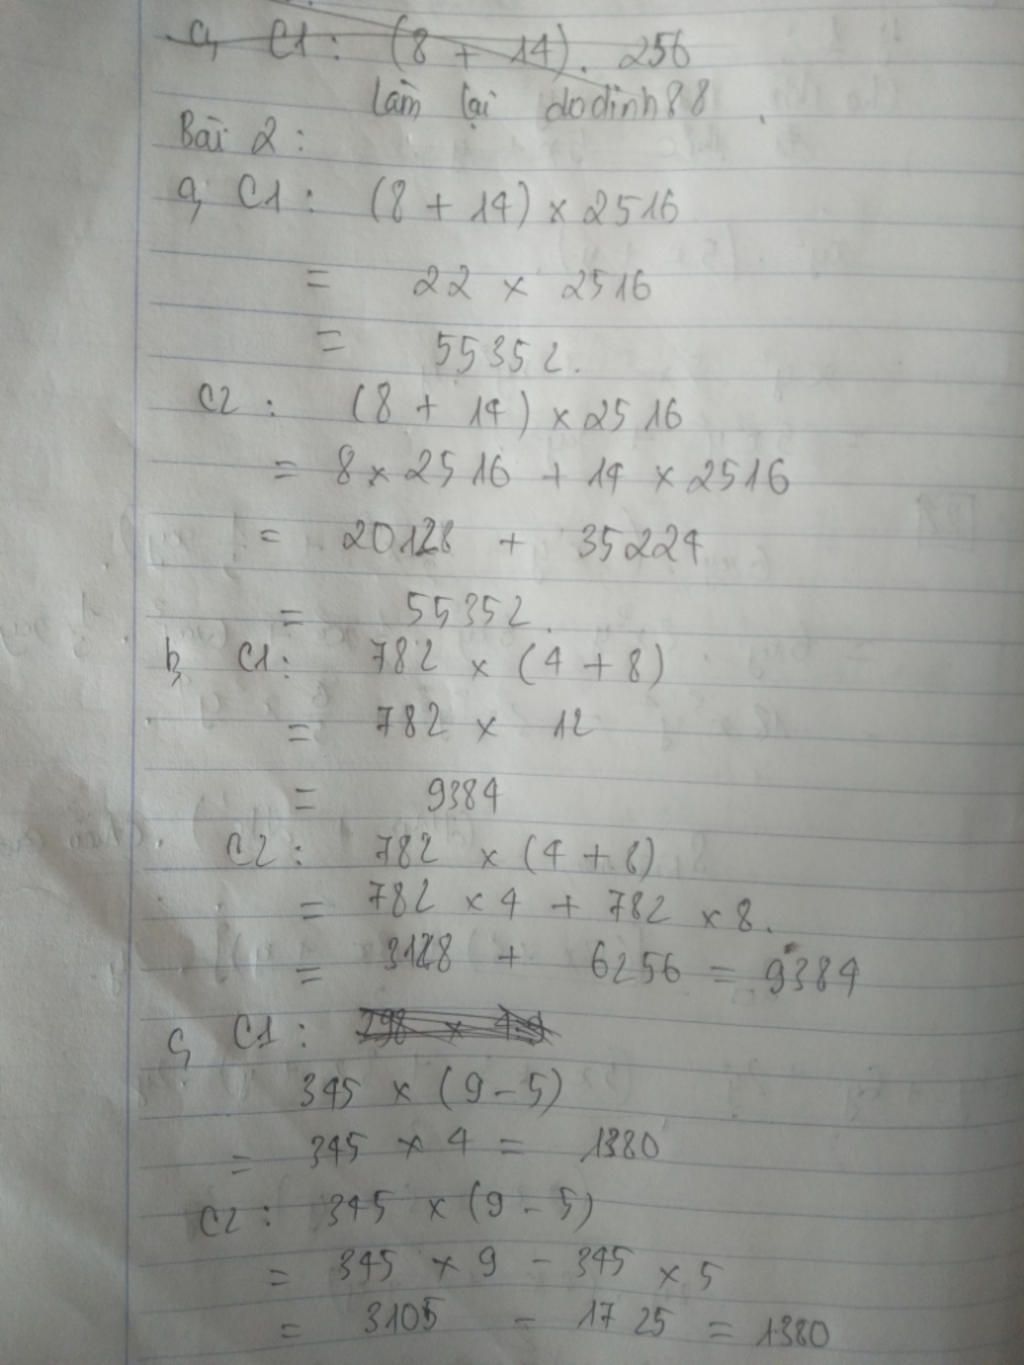 a, C1: (8 + 14). 256
làm lại dodinh88.
Bài 2:
a, C1: (8 + 14) × 2516
= 22 × 2516
= 55352.
C2: (8 + 14) × 2516
= 8 × 2516 + 14 × 2516
= 20128 + 35224
= 55352.
b, C1: 782 × (4 + 8)
= 782 × 12
= 9384
C2: 782 × (4 + 8)
= 782 × 4 + 782 × 8.
= 3128 + 6256 = 9384
c, C1:
345 × (9 - 5)
= 345 × 4 = 1380
C2: 345 × (9 - 5)
= 345 × 9 - 345 × 5
= 3105 - 1725 = 1380